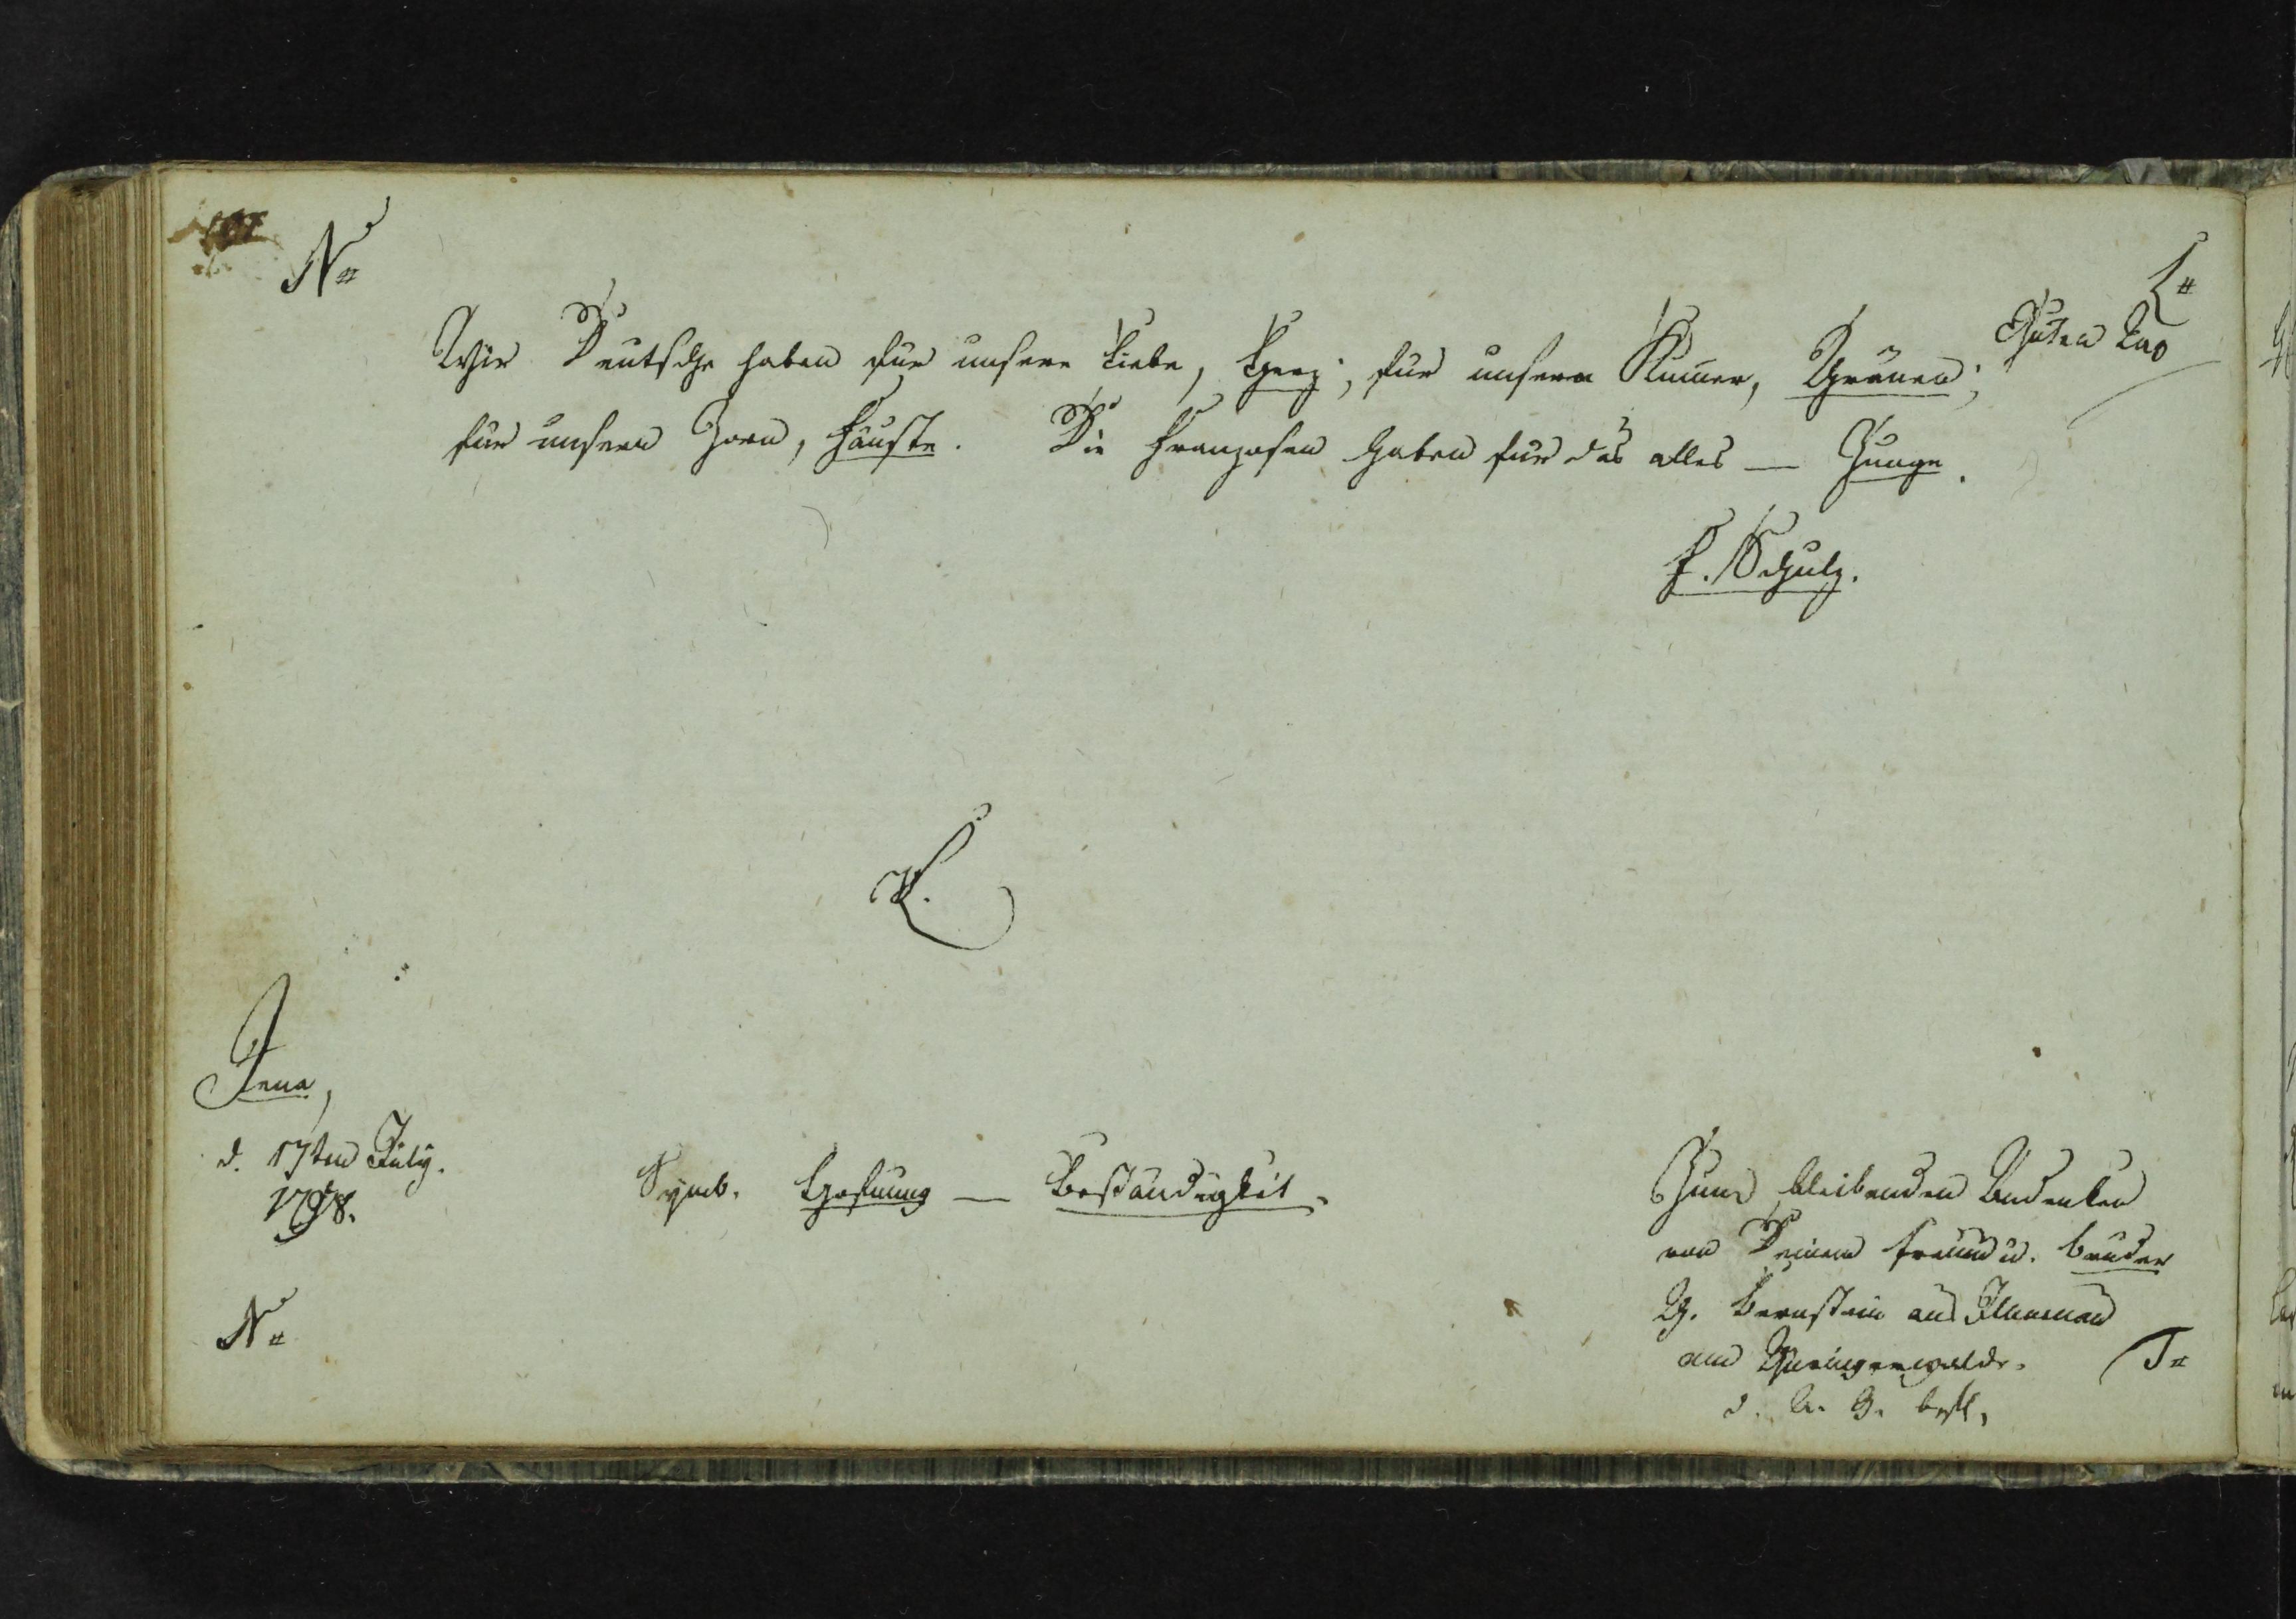 N
L
Guten Tag
Wir Deutsche haben für unsere Liebe, Herz; für unsern Kummer, Thränen;
für unsern Zorn, Fäuste. Die Franzosen haben für das alles — Zunge.
F. Schulz.
Jena,
d. 17ten July.
1798.
Symb. Hofnung — Beständigkeit.
Zum bleibenden Andenken
von Deinem Freund u. Bruder
G. Bernstein aus Ilmenau
am Thüringerwalde.
N
J